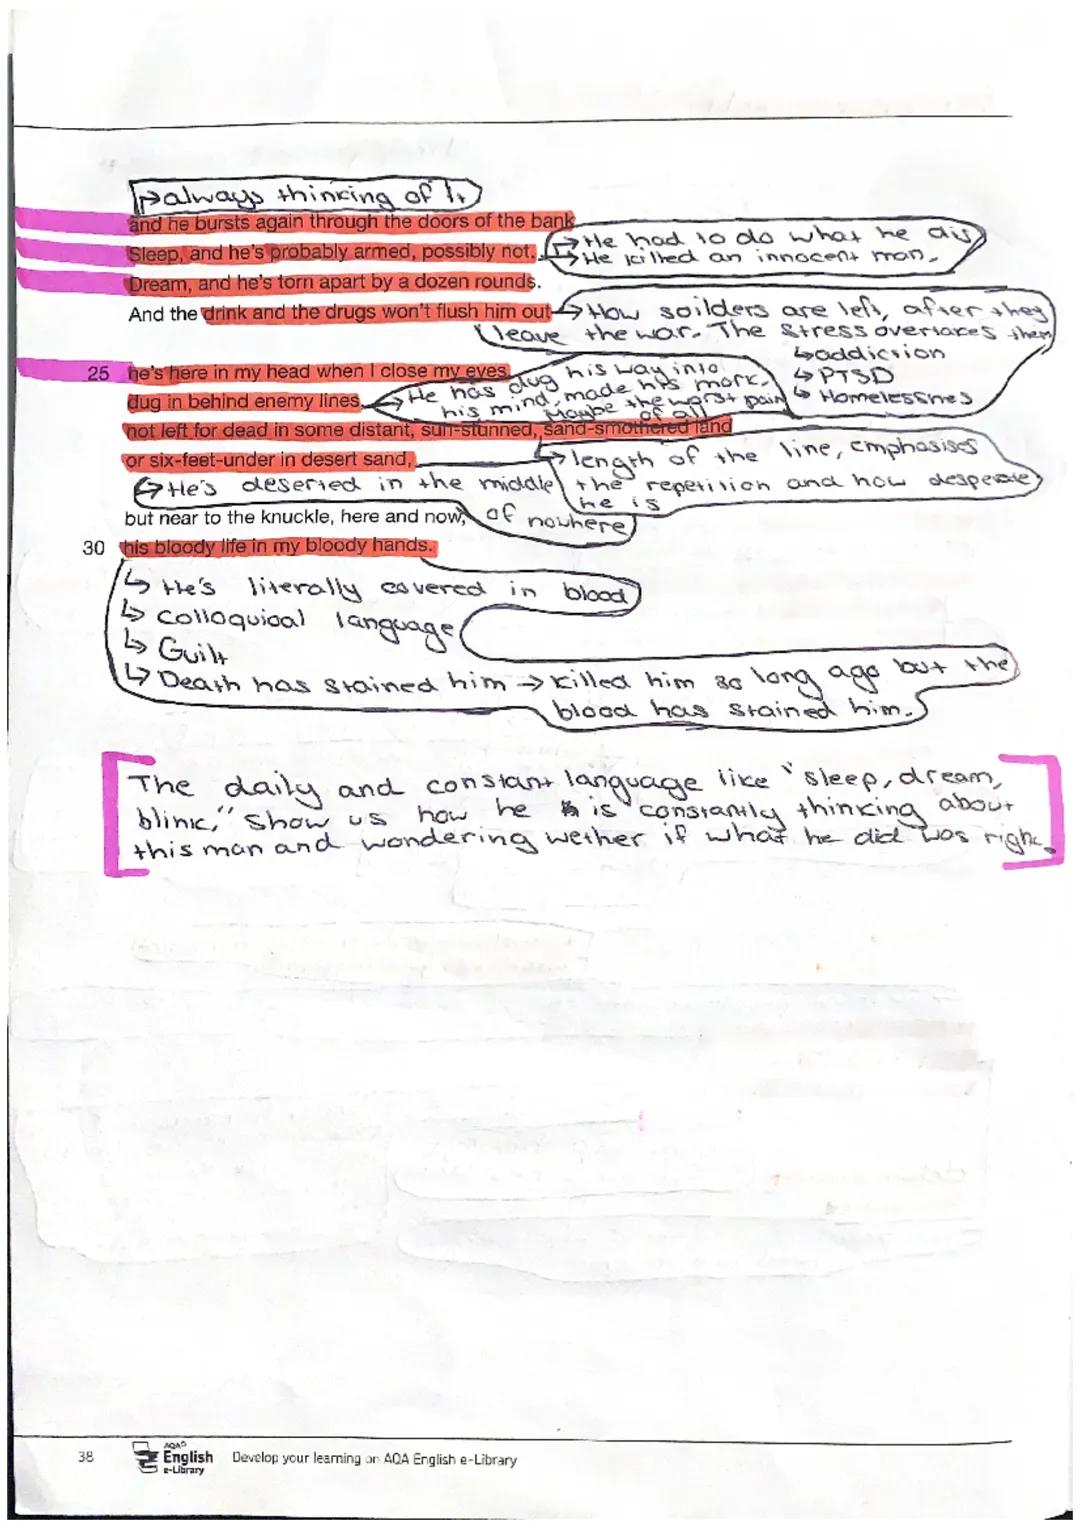 always thinking of it
and he bursts again through the doors of the bank
Sleep, and he's probably armed, possibly not.
He had to do what he did
He killed an innocent man.
Dream, and he's torn apart by a dozen rounds.
And the drink and the drugs won't flush him out
How soilders are left, after they
leave the war. The stress overtakes them
addiction
PTSD
Homelessnes
25 he's here in my head when I close my eyes,
dug in behind enemy lines,
He has dug his way into
his mind, made his mark.
Maybe the worst pain
of all
not left for dead in some distant, sun-stunned, sand-smothered land
or six-feet-under in desert sand,
length of the line, emphasises
the repetition and how desperate
he is
He's deserted in the middle
of nowhere
but near to the knuckle, here and now,
30 his bloody life in my bloody hands.
He's literally covered in blood
Colloquial language
Guilt
Death has stained him → killed him so long ago but the
blood has stained him.
The daily and constant language like "sleep, dream,
blink," show us how he is constantly thinking about
this man and wondering wether if what he did was right.
38
AQA
English
e-Library
Develop your learning on AQA English e-Library